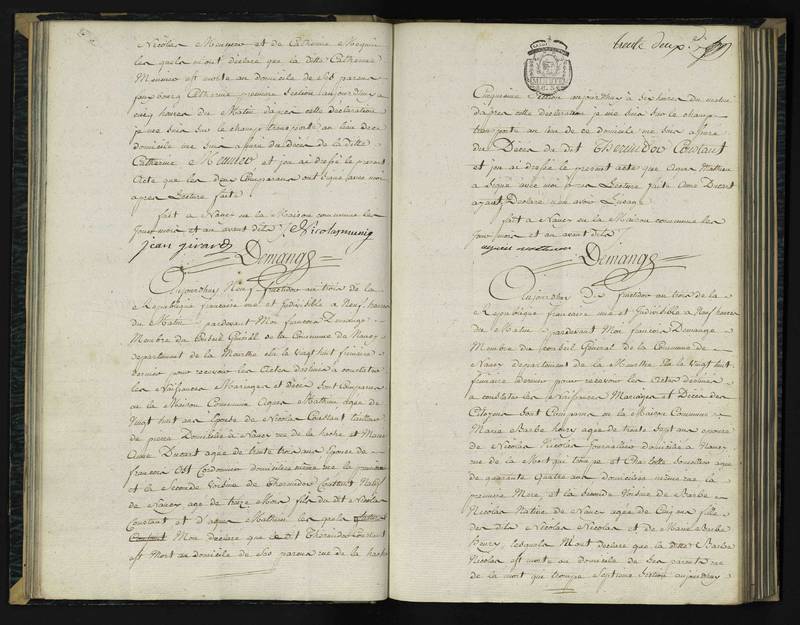 Nicolas Meunier et de Catherine Mequin
les quels m'ont declaré que la ditte Catherine
Meunier est morte au domicile de ses parens
fauxbourg Catherine premiere Section aujourd'huy a
cinq heures du Matin d'apres cette declaration
je me suis sur le champ transporté au lieu de ce
domicile me suis assuré du déces de la ditte
Catherine Meunier et j'en ai dressé le present
Acte que les deux Comparans ont signé avec moi
apres Lecture faite
fait a Nancy en la Maison commune les
jour mois et an avant dits
jean girard
Demange
Aujourdhuy Neuf fructidor an trois de la
Republique francaise une et Indivisible a Neuf heures
du Matin pardevant Moi francois Demange
Membre du Conseil Général de la Commune de Nancy
departement de la Meurthe élu le Vingt huit frimaire
dernier pour recevoir les Actes destinés a constater
les Naissances Mariages et Décès sont Comparus
en la Maison Commune Agnes Mathieu agée de
Vingt huit ans Epouse de Nicolas Constant tailleur
de pierre Domicilié a Nancy rue de la hache et Marie
Anne Ducart agée de trente trois ans Epouse de
francois Ost Cordonnier domiciliée même rue la premiere
et la Seconde Voisine de Thermidor Constant Natif
de Nancy agé de treize Mois fils du dit Nicolas
Constant et d'agnes Mathieu les quels
Mon declare que le dit Thermidor Constant
est Mort au domicile de ses parens rue de la hache
trente deux
Cinquieme Section aujourdhuy à six heures du matin
d'apres cette declaration je me suis sur le champ
transporté au lieu de ce domicile me suis assuré
du Décès de dit Thermidor Constant
et j'en ai dressé le present acte que Agnes Mathieu
a Signé avec moi apres Lecture faite Anne Ducart
ayant Declaré n'en avoir L'usage
fait a Nancy en la Maison commune les
jour mois et an avant dits
Demange
Aujourdhuy Dix fructidor an trois de la
Republique francaise une et Indivisible a Neuf heures
du Matin pardevant Moi francois Demange
Membre du conseil Général de la Commune de
Nancy departement de la Meurthe élu le Vingt huit
frimaire dernier pour recevoir les Actes destinés
a constater les Naissances Mariages et Décès des
Citoyens sont Comparus en la Maison Commune
Marie Barbe henry agée de trente sept ans epouse
de Nicolas Nicolas Journallier domicilié a Nancy
rue de la Mort qui trompe et Charlotte agée
de quarante Quattre ans domiciliée même rue la
premiere Mere et la Seconde Voisine de Barbe
Nicolas Native de Nancy agée de Cinq ans fille
des dits Nicolas Nicolas et de Marie Barbe
henry, lesquels Mont declaré que la ditte Barbe
Nicolas est morte au domicile de ses parents rue
de la mort qui trompe Septieme Section aujourdhuy